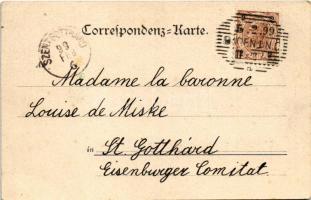 Correspondenz-Karte.
99
Madame la baronne
Louise de Miske
in St. Gotthárd
Eisenburger Comitat.